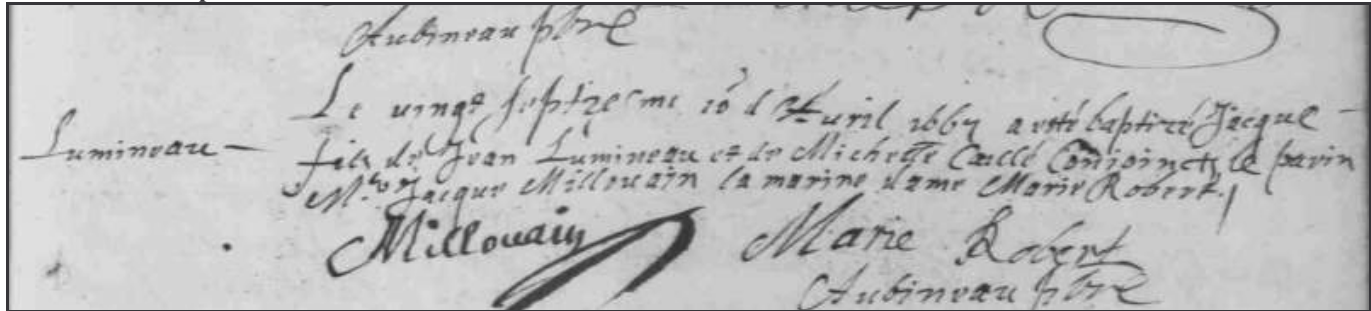 Aubineau pbre
Le vingt septiesme io d'Avril 1667 a esté baptizé Jacque
Lumineau
fils de Jean Lumineau et de Michelle Caillé Conjoincts le parin
Mre Jacque Millouain la marine dame Marie Robert
Millouain Marie Robert
Aubineau pbre